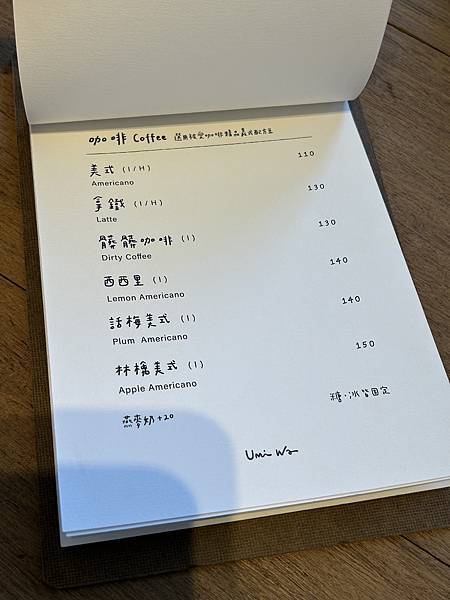 咖啡 Coffee 選用秘爱咖啡精品義式配方豆
美式 (I/H) 110
Americano
拿鐵 (I/H) 130
Latte
髒髒咖啡 (I) 130
Dirty Coffee
西西里 (I) 140
Lemon Americano
話梅美式 (I) 140
Plum Americano
林檎美式 (I) 150
Apple Americano
燕麥奶+20 糖·冰皆固定
Umi Wa